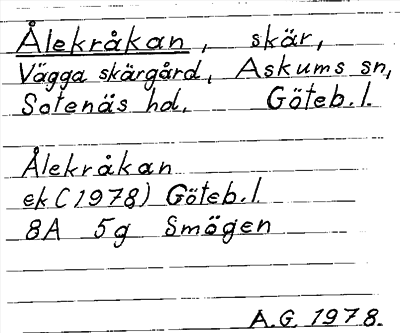 Ålekråkan, skär,
Vägga skärgård, Askums sn,
Sotenäs hd. Göteb. l.
Ålekråkan
ek (1978) Göteb. l.
8A 5g Smögen
A.G. 1978.